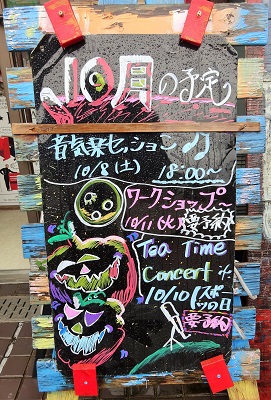 10月の予定
音楽セッション
10/8(土) 18:00～
ワークショップ～
10/11(火)要予約
Tea Time
Concert
10/10(スポーツの日
要予約